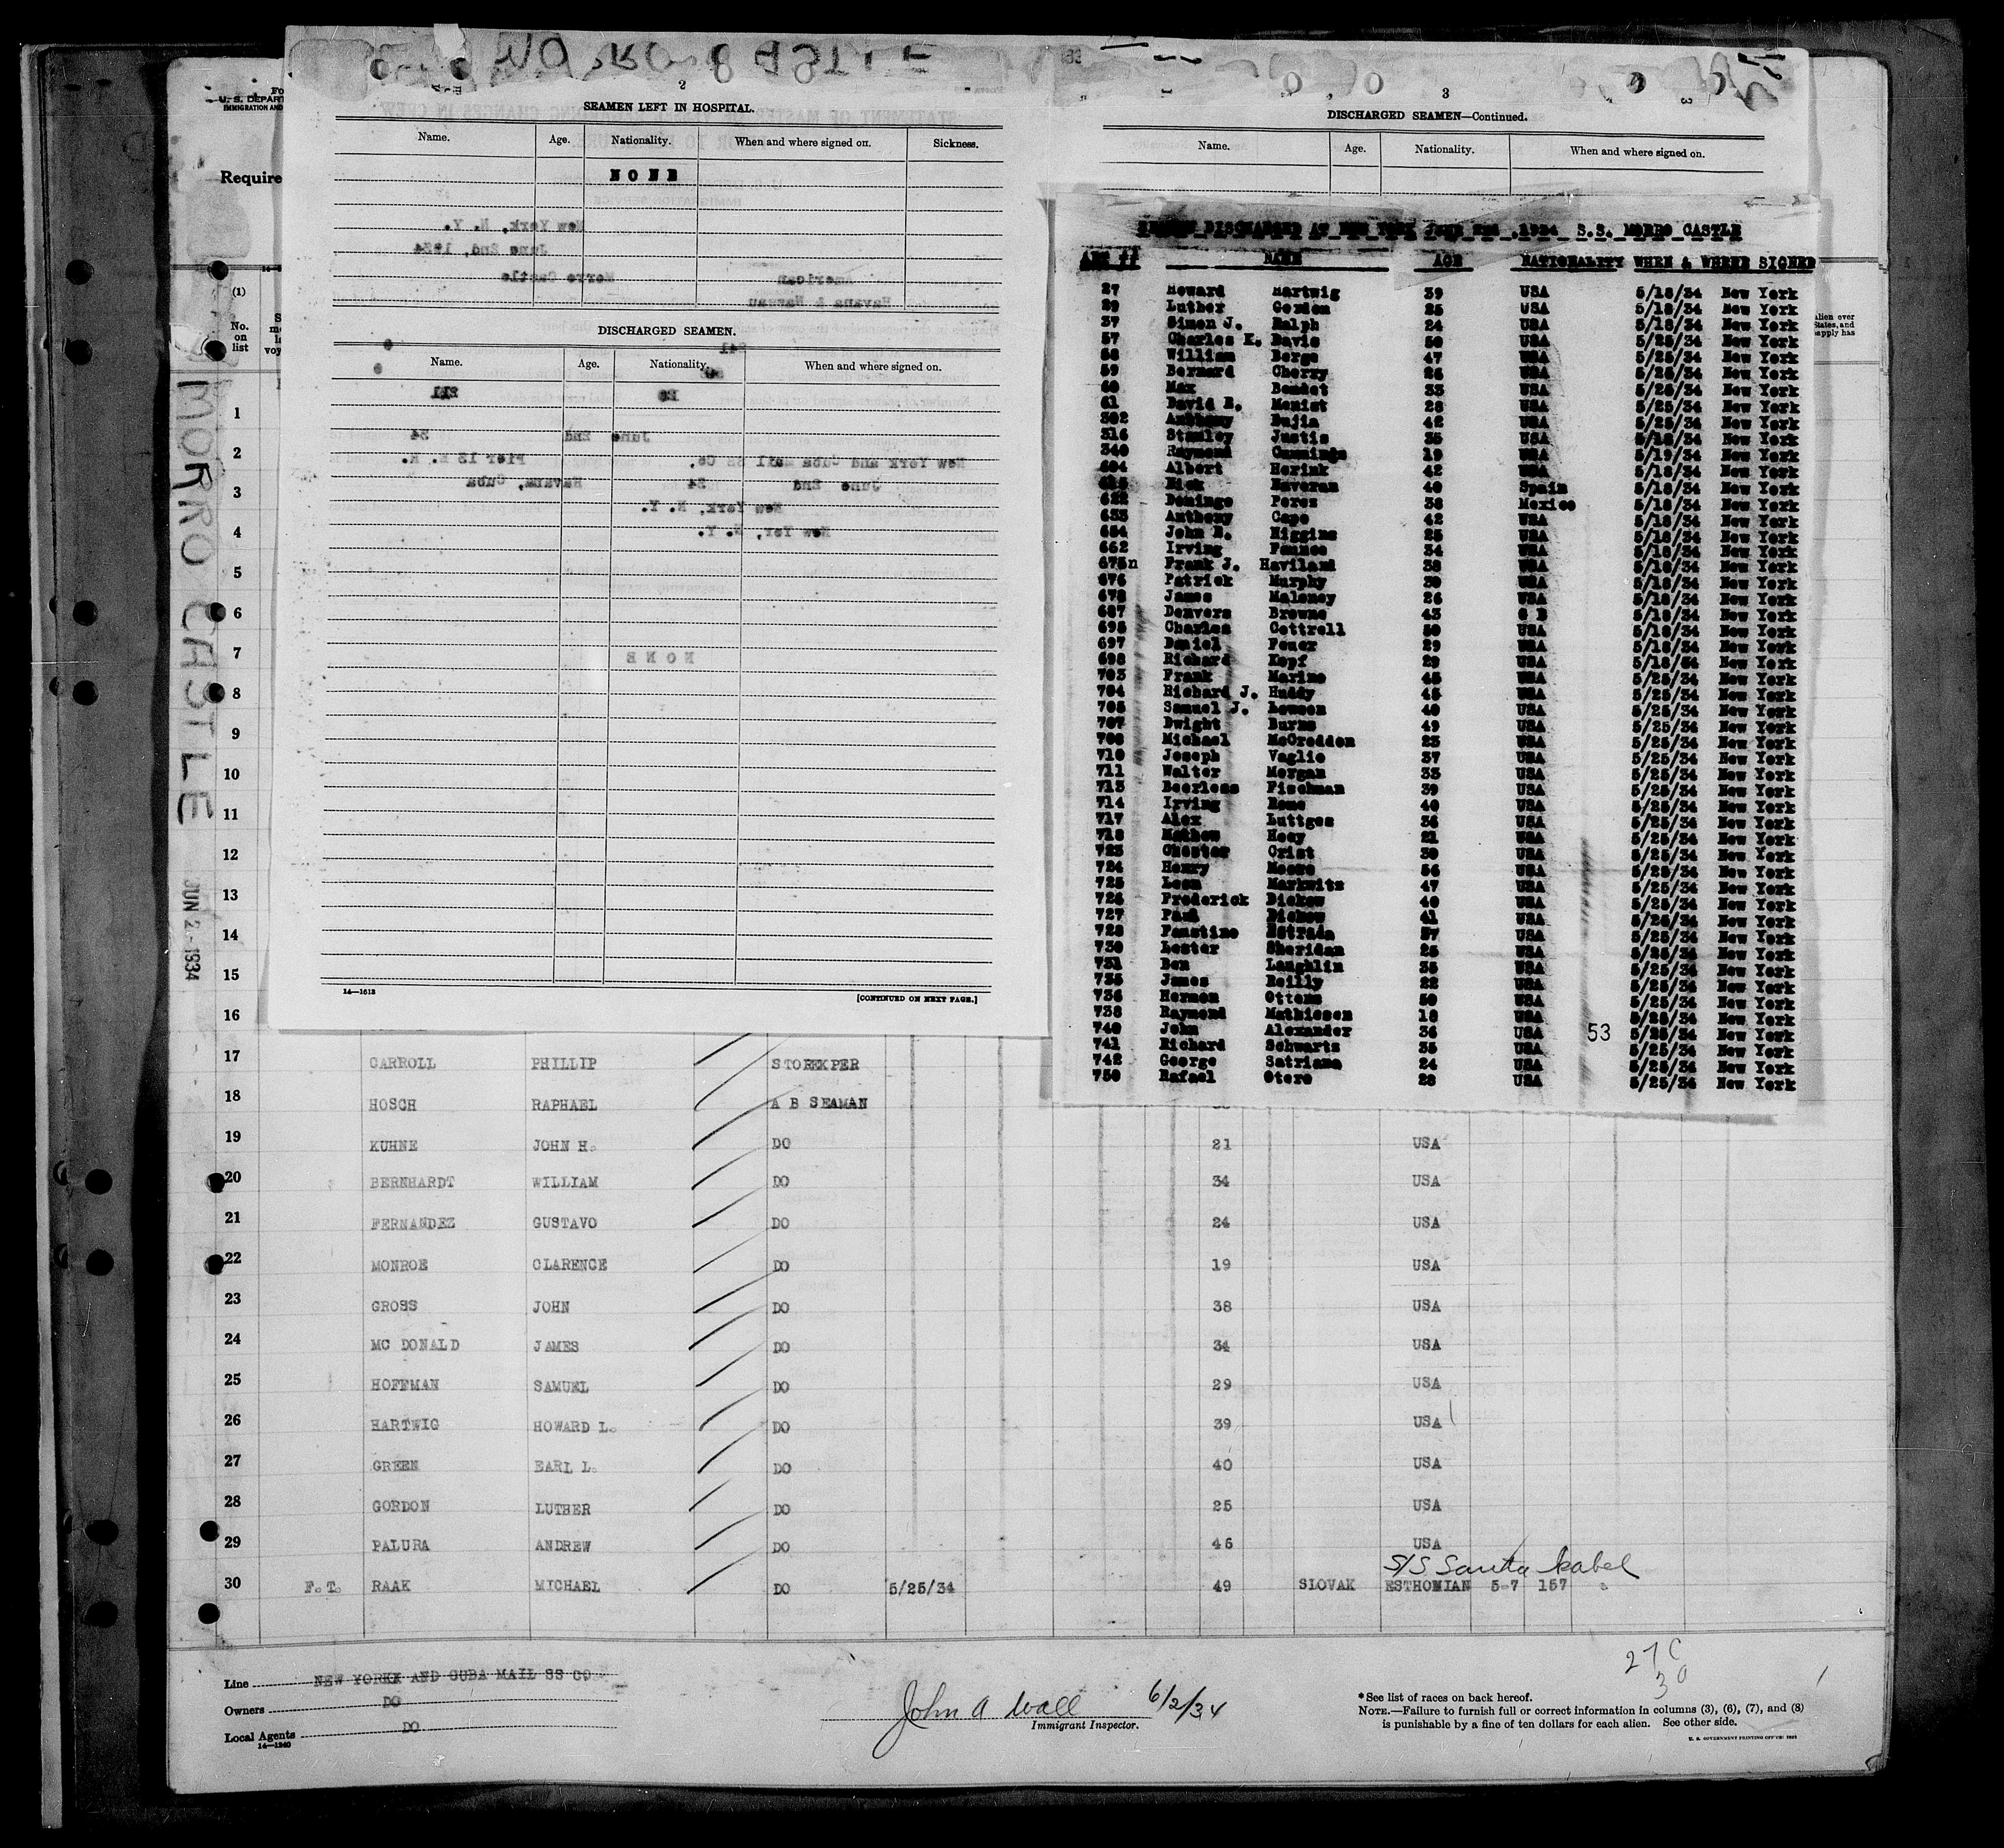 2
SEAMEN LEFT IN HOSPITAL.
Name. Age. Nationality. When and where signed on. Sickness.
NONE
New York, N. Y.
June 2nd, 1934
American Morro Castle
Havana & Nassau
DISCHARGED SEAMEN.
Name. Age. Nationality. When and where signed on.
June 2nd 34
New York and Cuba Mail SS Co, Pier 13 E. R.
June 2nd 34 Havana, Cuba
New York, N. Y.
New Yor, N. Y.
NONE
14—1613
[CONTINUED ON NEXT PAGE.]
3
DISCHARGED SEAMEN—Continued.
Name. Age. Nationality. When and where signed on.
DISCHARGED AT NEW YORK June 2nd, 1934 S.S. MORRO CASTLE
NAME AGE NATIONALITY WHEN & WHERE SIGNED
27 Howard Hartwig 39 USA 5/18/34 New York
29 Luther Gordon 25 USA 5/18/34 New York
37 Simon J. Ralph 24 USA 5/18/34 New York
57 Charles K. Davis 50 USA 5/25/34 New York
58 William Berge 47 USA 5/25/34 New York
59 Bernard Cherry 26 USA 5/25/34 New York
60 Max Bendet 33 USA 5/26/34 New York
61 David B. Menist 28 USA 5/25/34 New York
302 Anthony Bujia 42 USA 5/25/34 New York
316 Stanley Justis 35 USA 5/18/34 New York
340 Raymond Cummings 19 USA 5/19/34 New York
604 Albert Horink 42 USA 5/18/34 New York
Nick Naveran 40 Spain 5/18/34 New York
622 Domingo Perez 38 Mexico 5/18/34 New York
633 Anthony Cape 42 USA 5/18/34 New York
654 John N. Higgins 25 USA 5/18/34 New York
662 Irving 34 USA 5/18/34 New York
675n Frank J. Haviland 38 USA 5/18/34 New York
676 Patrick Murphy 30 USA 5/18/34 New York
678 James Maloney 26 USA 5/18/34 New York
687 Denvers Browne 43 G B 5/18/34 New York
695 Charles Cottrell 50 USA 5/18/34 New York
697 Daniel Pouer 29 USA 5/18/34 New York
698 Richard Kopf 29 USA 5/18/34 New York
703 Frank Marino 45 USA 5/25/34 New York
704 Richard J. Huddy 45 USA 5/25/34 New York
705 Samuel J. Lowson 40 USA 5/25/34 New York
707 Dwight Burns 49 USA 5/25/34 New York
708 Michael McCredden 23 USA 5/25/34 New York
710 Joseph Vaglio 37 USA 5/25/34 New York
711 Walter Morgan 33 USA 5/25/34 New York
713 Beerless Fischman 39 USA 5/25/34 New York
714 Irving Rose 40 USA 5/25/34 New York
717 Alex Luttges 36 USA 5/25/34 New York
718 Mathew Hoey 21 USA 5/25/34 New York
723 Chester Crist 30 USA 5/25/34 New York
724 Henry Moore 56 USA 5/25/34 New York
725 Leon Markwitz 47 USA 5/25/34 New York
726 Frederick Dickow 40 USA 5/25/34 New York
727 Paul Dickow 41 USA 5/26/34 New York
728 Faustino Estrada 57 USA 5/25/34 New York
730 Lester Sheridan 25 USA 5/25/34 New York
731 Ben Laughlin 35 USA 5/25/34 New York
735 James Reilly 22 USA 5/25/34 New York
736 Hermon Ottens 50 USA 5/25/34 New York
738 Raymond Mathiesen 18 USA 5/25/34 New York
740 John Alexander 36 USA 53 5/25/34 New York
741 Richard Schwartz 35 USA 5/25/34 New York
742 George Satriana 24 USA 5/25/34 New York
750 Rafael Otero 28 USA 5/25/34 New York
U. S. DEPART
IMMIGRATION AND
Require
(1)
No. on list
MORRO CASTLE
JUN 2-1934
1
2
3
4
5
6
7
8
9
10
11
12
13
14
15
16
17 CARROLL PHILLIP STOREKPER
18 HOSCH RAPHAEL A B SEAMAN
19 KUHNE JOHN H. DO 21 USA
20 BERNHARDT WILLIAM DO 34 USA
21 FERNANDEZ GUSTAVO DO 24 USA
22 MONROE CLARENCE DO 19 USA
23 GROSS JOHN DO 38 USA
24 MC DONALD JAMES DO 34 USA
25 HOFFMAN SAMUEL DO 29 USA
26 HARTWIG HOWARD L. DO 39 USA
27 GREEN EARL L. DO 40 USA
28 GORDON LUTHER DO 25 USA
29 PALURA ANDREW DO 46 USA
S/S Santa Isabel
30 F. T. RAAK MICHAEL DO 5/25/34 49 SLOVAK ESTHONIAN 5-7 157
Line NEW YORKX AND CUBA MAIL SS CO
Owners DO
Local Agents DO
14—1240
John A Wall 6/2/34
Immigrant Inspector.
27 C
30
*See list of races on back hereof.
NOTE.—Failure to furnish full or correct information in columns (3), (6), (7), and (8)
is punishable by a fine of ten dollars for each alien. See other side.
U. S. GOVERNMENT PRINTING OFFICE: 1932